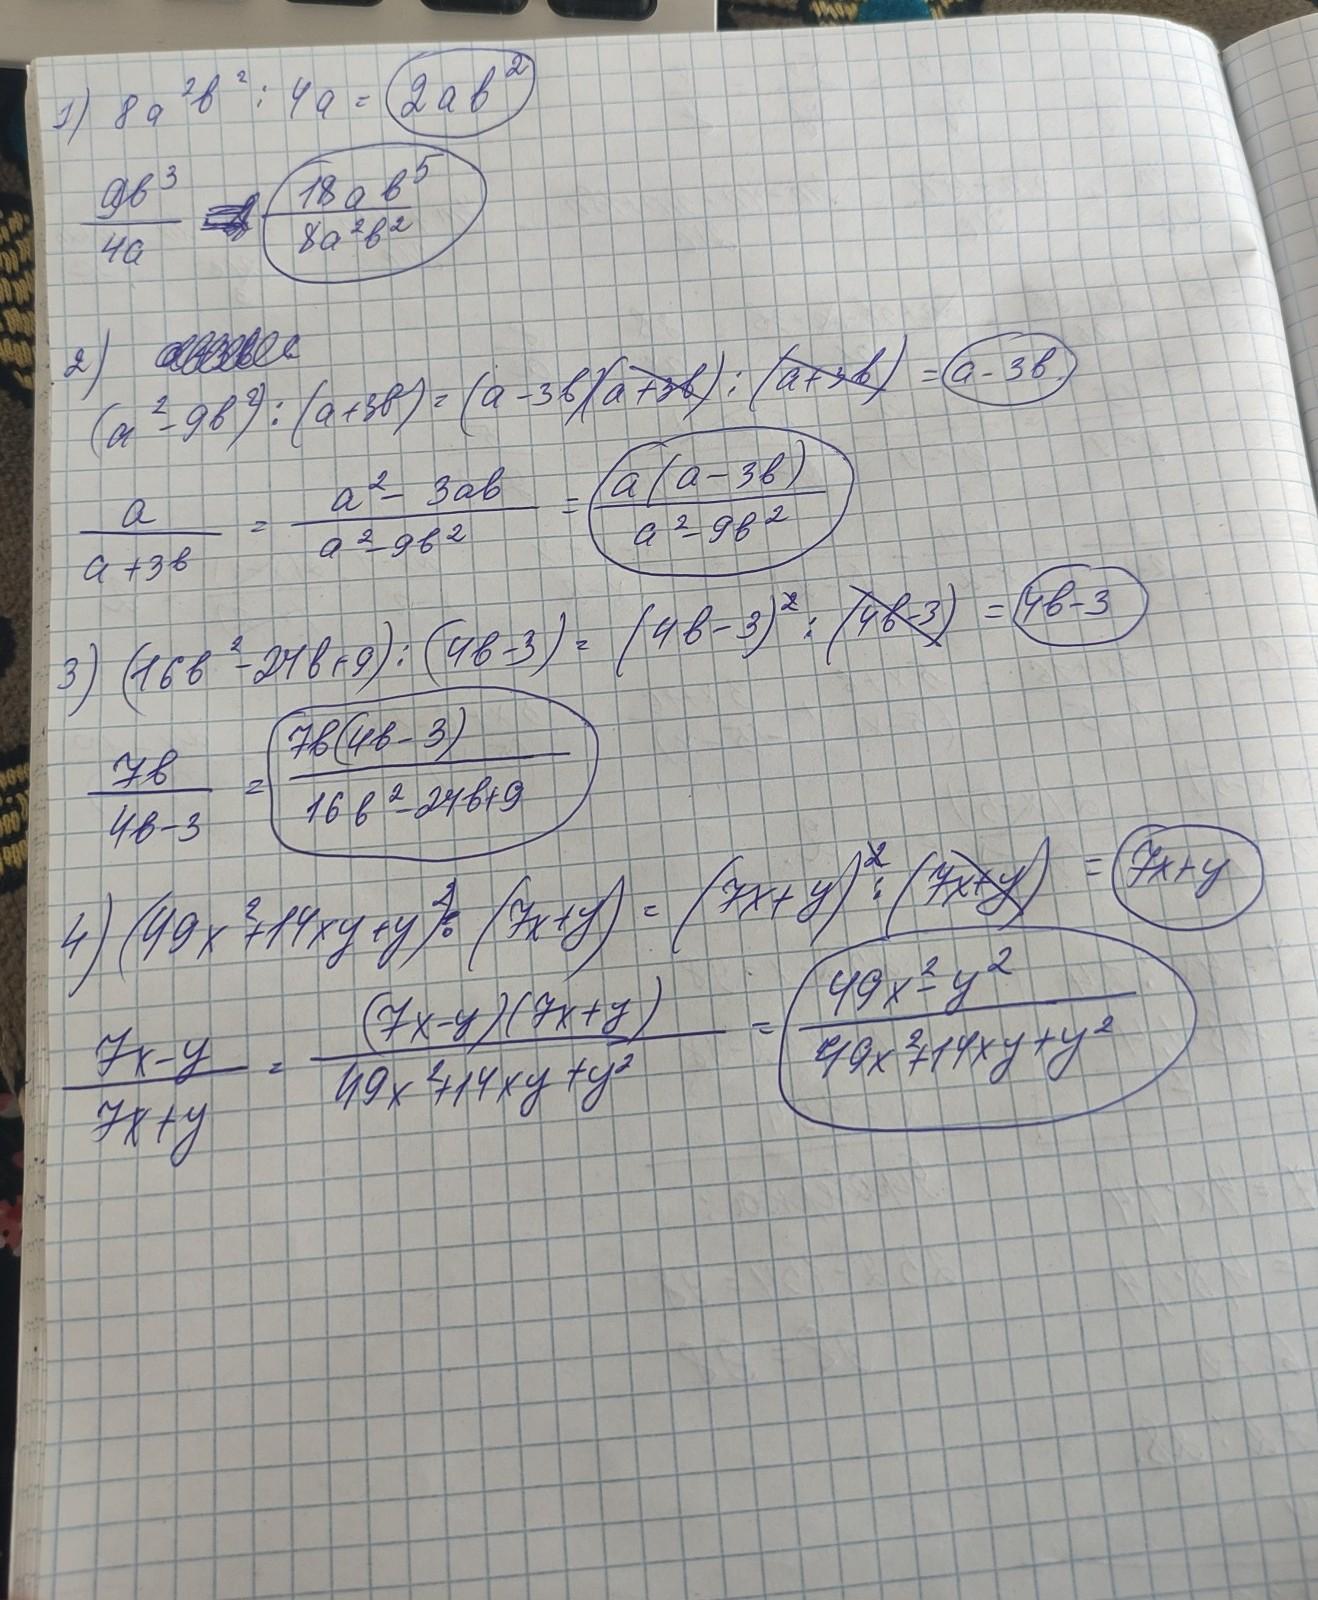 1) 8a²b² : 4a = 2ab²
9b³/4a = 18ab⁵/8a²b²
2)
(a²-9b²) : (a+3b) = (a-3b)(a+3b) : (a+3b) = a-3b
a/a+3b = a²-3ab/a²-9b² = a(a-3b)/a²-9b²
3) (16b²-24b+9) : (4b-3) = (4b-3)² : (4b-3) = 4b-3
7b/4b-3 = 7b(4b-3)/16b²-24b+9
4) (49x²+14xy+y²) : (7x+y) = (7x+y)² : (7x+y) = 7x+y
7x-y/7x+y = (7x-y)(7x+y)/49x²+14xy+y² = 49x²-y²/49x²+14xy+y²